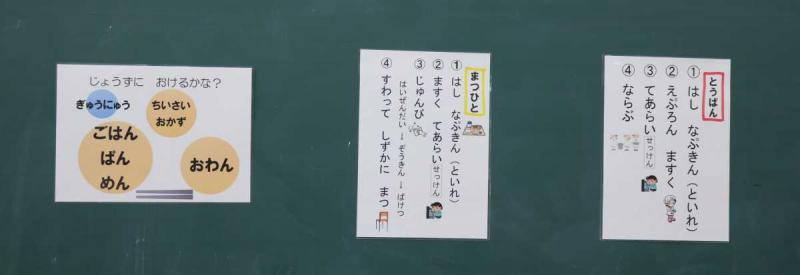 じょうずに おけるかな？
ぎゅうにゅう
ちいさい
おかず
ごはん
ぱん
めん
おわん
まつひと
① はし なぷきん（といれ）
② ますく てあらい せっけん
③ じゅんび
はいぜんだい → ぞうきん → ばけつ
④ すわって しずかに まつ
とうばん
① はし なぷきん（といれ）
② えぷろん ますく
③ てあらい せっけん
④ ならぶ